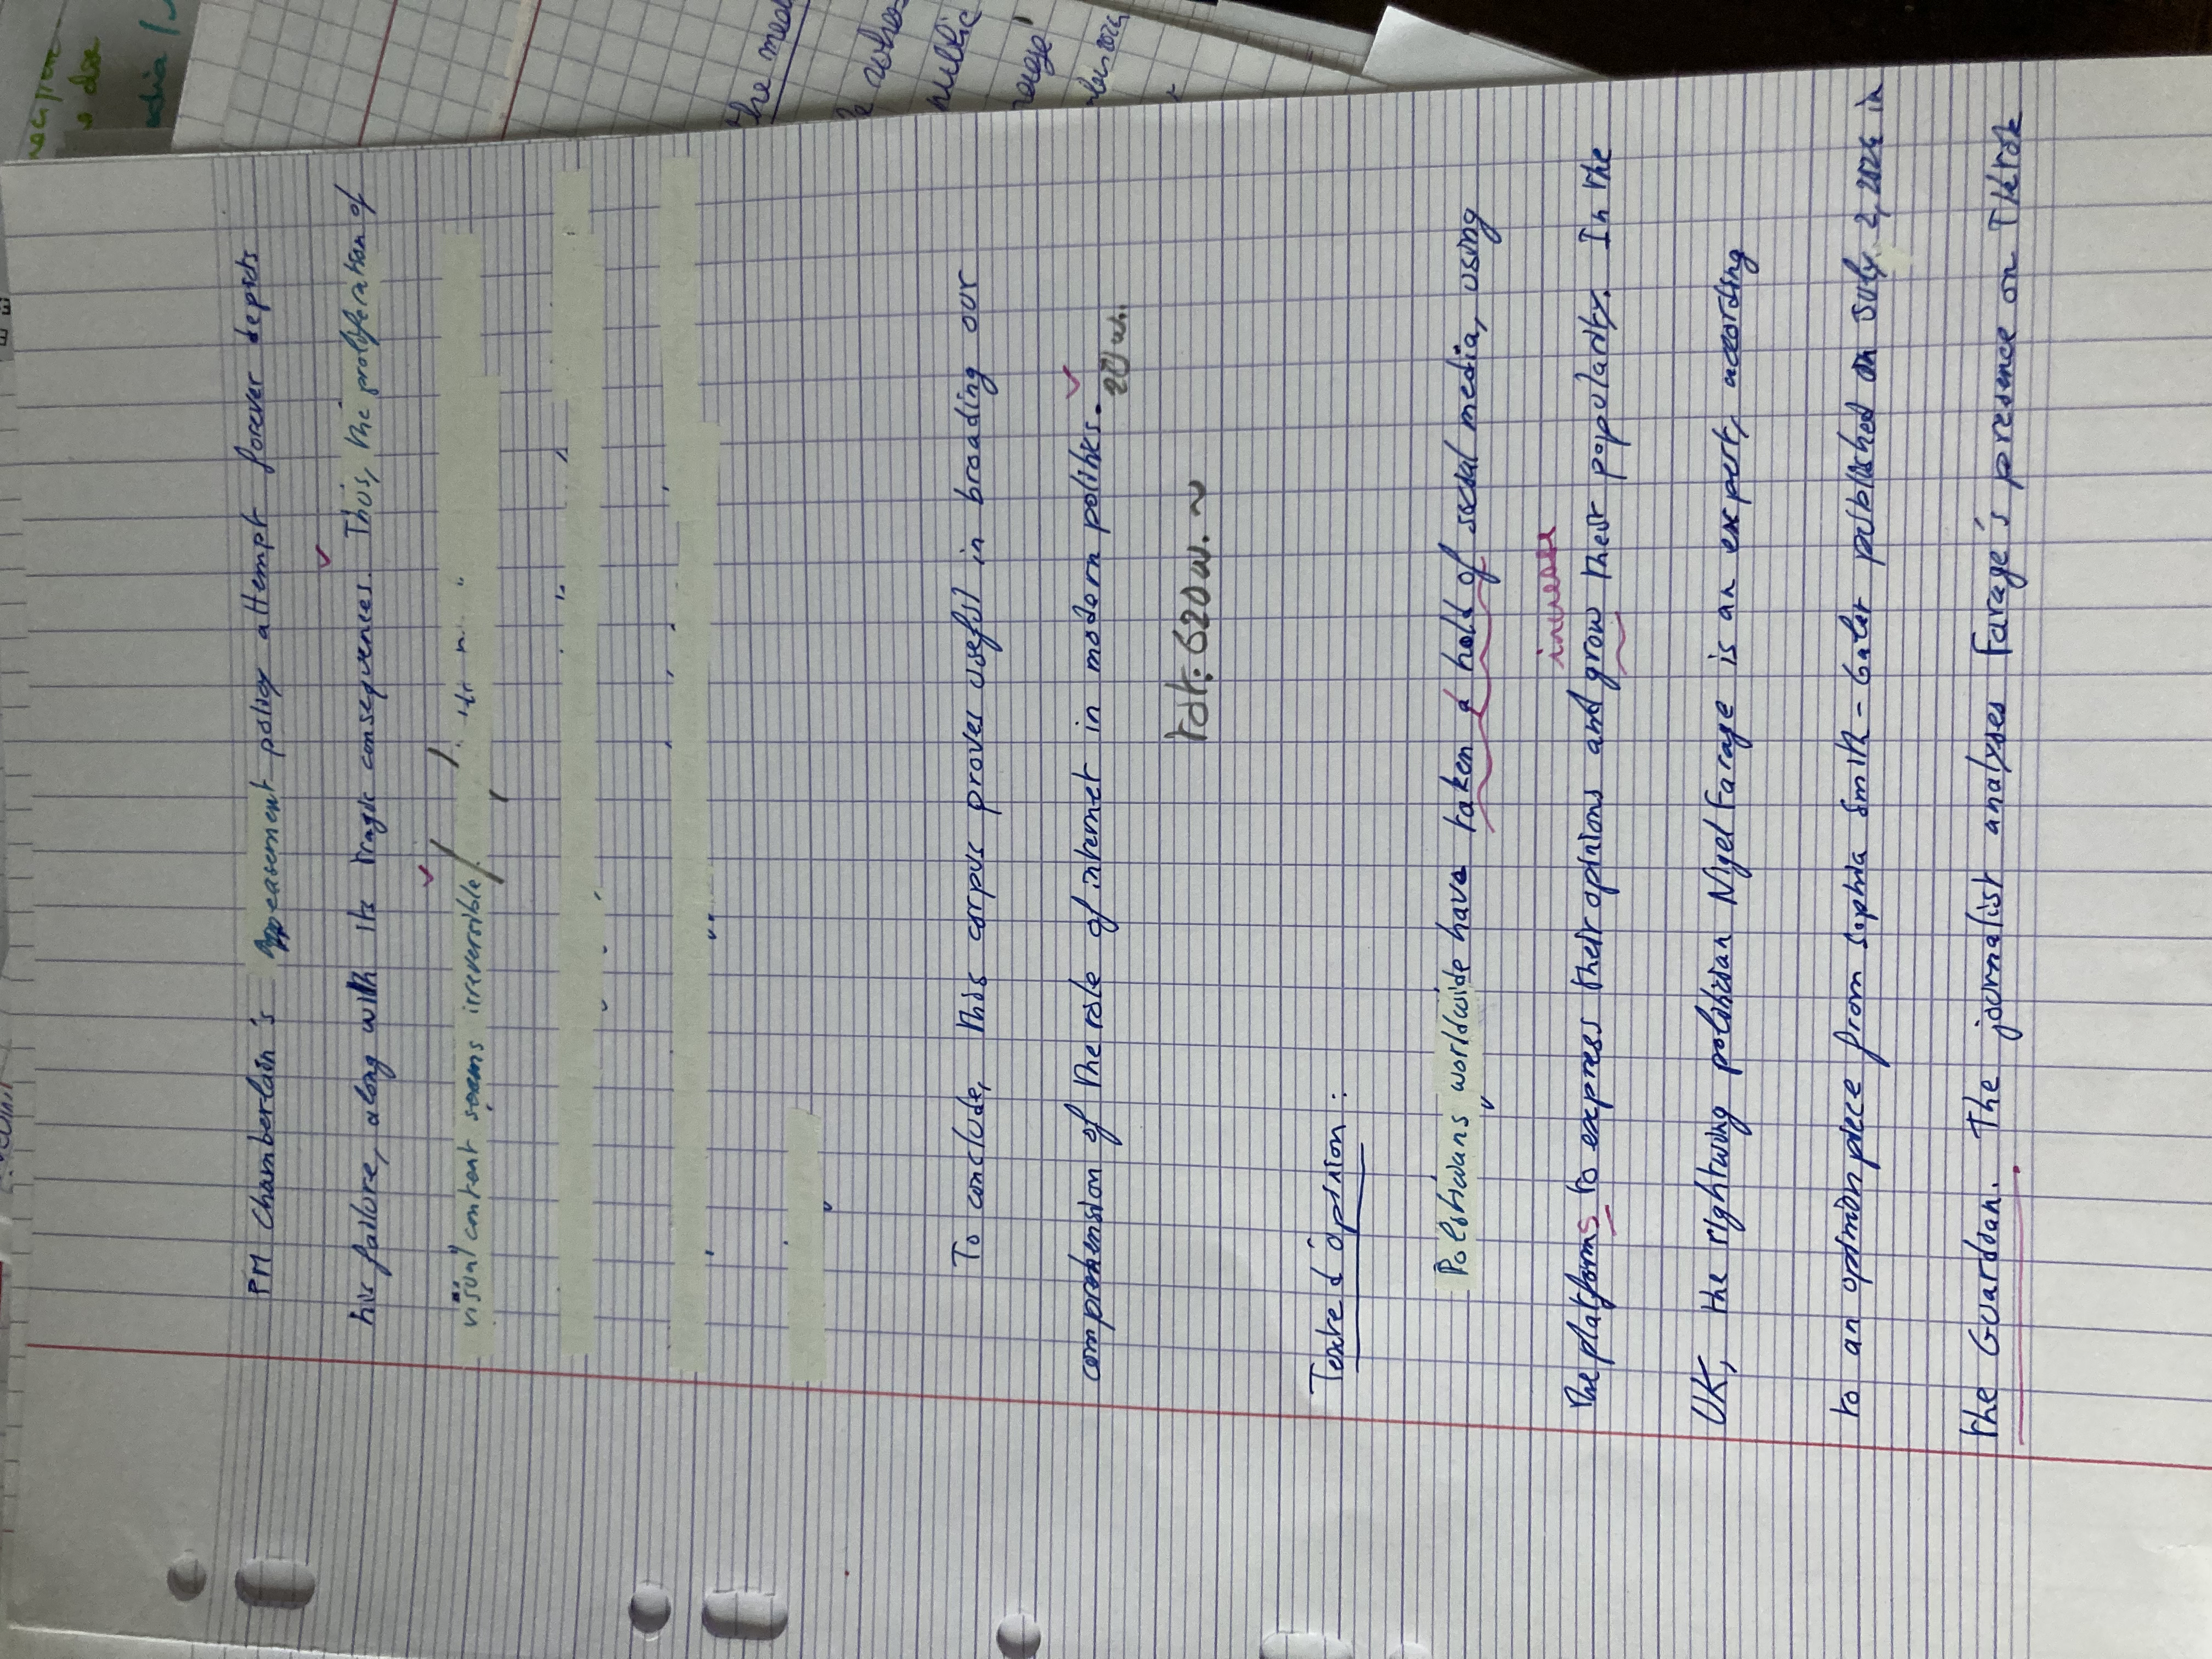 PM Chamberlain's appeasement policy attempt forever depicts
his failure, along with its tragic consequences. Thus, the proliferation of
visual content seems irreversible
To conclude, this corpus proves useful in broading our
comprehension of the role of internet in modern politiks.
20 w.
Tot: 620 w. ~
Texte d'opinion :
Polisticians worldwide have taken a hold of social media, using
increase
the platforms to express their opinions and grow their popularity. In the
UK, the rightwing politician Nigel Farage is an expert, according
to an opinion piece from Sophia Smith-Galer published on July 2, 2024 in
the Guardian. The journalist analyses Farage's presence on Tiktok
the med
public